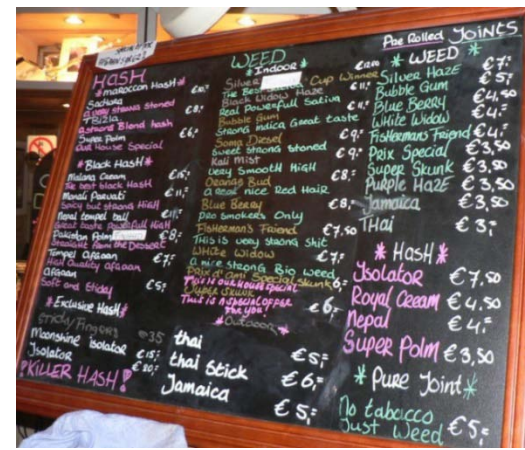 HASH
*MAROCCAN HASH*
Sachara €10,-
a very strong stoned
Tbizla €8,-
a strong Blend hash
Super Polm €6,-
Our House Special
*Black Hash*
Malana Cream €15,-
The best black Hash
Manali Parvati €11,-
Spicy but strong High
Nepal tempel ball €11,-
Great taste Powerfull High
Pakistan Polm €8,-
Straight from the Dessert
Tempel Afgaan €7,-
High Quality afgaan
Afgaan €5,-
Soft and Sticky
*Exclusive Hash*
Sticky Fingers €35
Moonshine isolator €15,-
Isolator €20,-
!KILLER HASH!
WEED
*Indoor*
Silver Haze €12,00
The Best Cup Winner
Black Widow Haze €11,-
Real Powerfull Sativa
Bubble Gum €11,-
Strong indica Great taste
Soma Diesel €9,-
Sweet strong stoned
Kali Mist €9,-
Very Smooth High
Orange Bud €8,-
a Real nice Red Hair
Blue Berry €8,-
pro smokers Only
Fisherman's Friend €7,50
This is very strong shit
White Widow €7,-
a nice strong Big weed
Prix d' Ami Special skunk 6,-
This is our House special
Super Skunk €6,-
This is a special offer
for you!
*Outdoor*
thai €5,-
thai Stick €6,-
Jamaica €5,-
Pre Rolled Joints
*WEED*
Silver Haze €7,-
Bubble Gum €5,-
Blue Berry €4,50
White Widow €4,-
Fishermans Friend €4,-
Prix Special €3,50
Super Skunk €3,50
Purple Haze €3,50
Jamaica €3,50
Thai €3,-
*Hash*
Isolator €7,50
Royal Cream €4,50
Nepal €4,-
Super Polm €3,50
*Pure Joint*
No tabacco
Just Weed €5,-